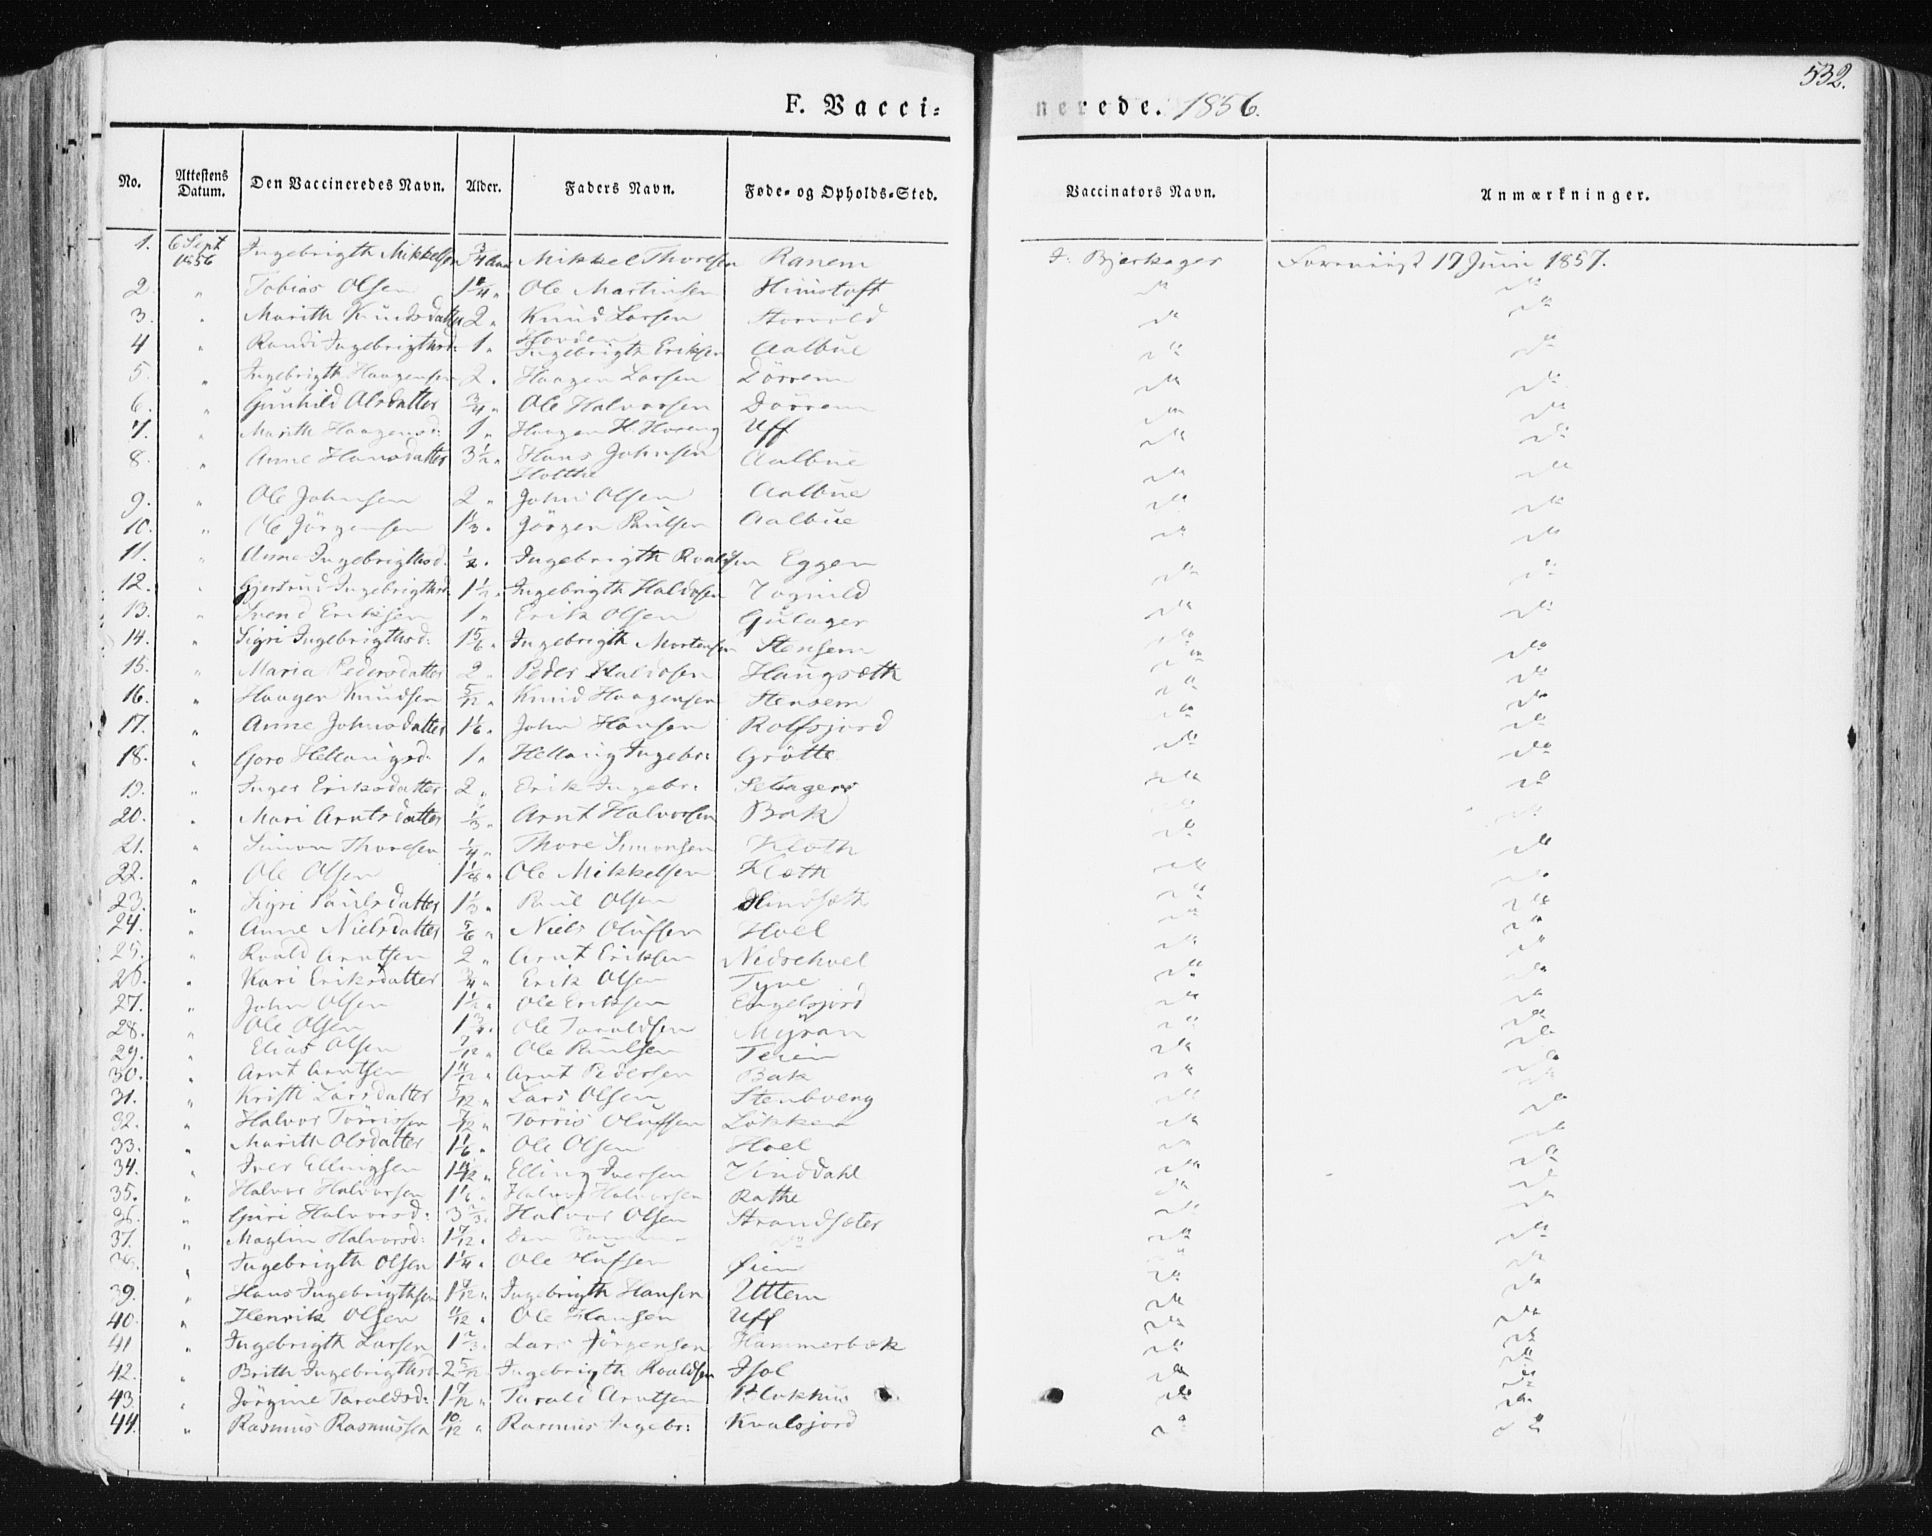 532.
F. Vacci= nerede. 1856.
No. Attestens Datum. Den Vaccineredes Navn. Alder. Faders Navn. Føde- og Opholds-Sted. Vaccinators Navn. Anmærkninger.
1. 6 Sept 1856 Ingebrigth Mikkelsen 3/4 Mikkel Thoresen Ranem J. Bjerkager Forevüst 17 Juni 1857.
2. " Tobias Olsen 1 " Ole Martinsen do do
3. " Marith Knudsdatter 2 " Knud Larsen do do
4 " Randi Ingebrigthsd: 1 " Ingebrigth Eriksen Aalbue do do
5. " Ingebrigth Haagensen 2 " Haagen Larsen Dörrem do do
6. " Gunhild Olsdatter 3/4 " Ole Halvorsen Dörrem do do
7. " Marith Haagensd: 1 " Haagen H. Uff do do
8. " Anne Hansdatter 3 1/2 " Hans Johnsen Holthe Aalbue do do
9. " Ole Johnsen 2 " John Olsen Aalbue do do
10. " Ole Jörgensen 1 1/3 " Jörgen Paulsen Aalbue do do
11. " Anne Ingebrigthsd. 1/2 " Ingebrigth Roaldsen Eggen do do
12. " Gjertrud Ingebrigthsd. 1 1/2 " Ingebrigth Haldosen Vognild do do
13. " Svend Eriksen 1 " Erik Olsen Gulager do do
14. " Sigri Ingebrigthsd: 1 5/6 " Ingebrigth Mortensen Stensem do do
15. " Maria Pedersdatter 2 " Peder Haldosen Haugsæth do do
16. " Haagen Knudsen 5/12 " Knud Haagensen Stensem do do
17. " Anne Johnsdatter 1 1/6 " John Hansen Rolfsjord do do
18. " Goro Hellangsd. 1 " Hellang Ingebr: Grötte do do
19. " Inger Eriksdatter 2 " Erik Ingebr: do do
20. " Mari Arntsdatter 1/3 " Arnt Halvorsen Bak do
21. " Simon Thoresen 1/4 " Thore Simonsen Kleth do do
22. " Ole Olsen 1 " Ole Mikkelsen Kleth do do
23. " Sigri Paulsdatter 1 1/3 " Paul Olsen do do
24. " Anne Nielsdatter 5/6 " Niels Olufsen Hoel do do
25. " Roald Arntsen 2 " Arnt Eriksen Nedrehoel do do
26. " Kari Eriksdatter 3/4 " Erik Olsen do do
27. " John Olsen 1 1/2 " Ole Eriksen Engelsjord do do
28. " Ole Olsen 1 3/4 " Ole Taraldsen Myran do do
29. " Elias Olsen 7/12 " Ole Paulsen do do
30. " Arnt Arntsen 1 11/12 " Arnt Pedersen Bak do do
31. " Kristi Larsdatter 5/12 " Lars Olsen do do
32. " Halvor Törrissen 7/12 " Törris Olufsen Lökken do do
33. " Marith Olsdatter 1 1/6 " Ole Olsen Hoel do do
34. " Iver Ellingsen 1 " Elling Iversen Vinddahl do do
35. " Halvor Halvorsen 1 1/6 " Halvor Halvorsen Rathe do do
36. " Guri Halvorsd: 3 " Halvor Olsen Strandsæter do do
37. " Maglin Halvorsd: 1 7/12 " Den Samme do do do
38. " Ingebrigth Olsen 1 1/4 " Ole Olufsen Öien do do
39. " Hans Ingebrigthsen 1 " Ingebrigth Hansen Uttem do do
40. " Henrik Olsen 11/12 " Ole Hansen Uff do do
41 " Ingebrigth Larsen 1 2/3 " Lars Jörgensen Hammerbæk do do
42. " Brith Ingebrigthsd. 2 5/12 " Ingebrigth Roaldsen do do
43. " Jörgine Taraldsd: 1 7/12 " Tarald Arntsen Blokhus do do
44. " Rasmus Rasmussen 10/12 " Rasmus Ingebr: Kvalsjord do do